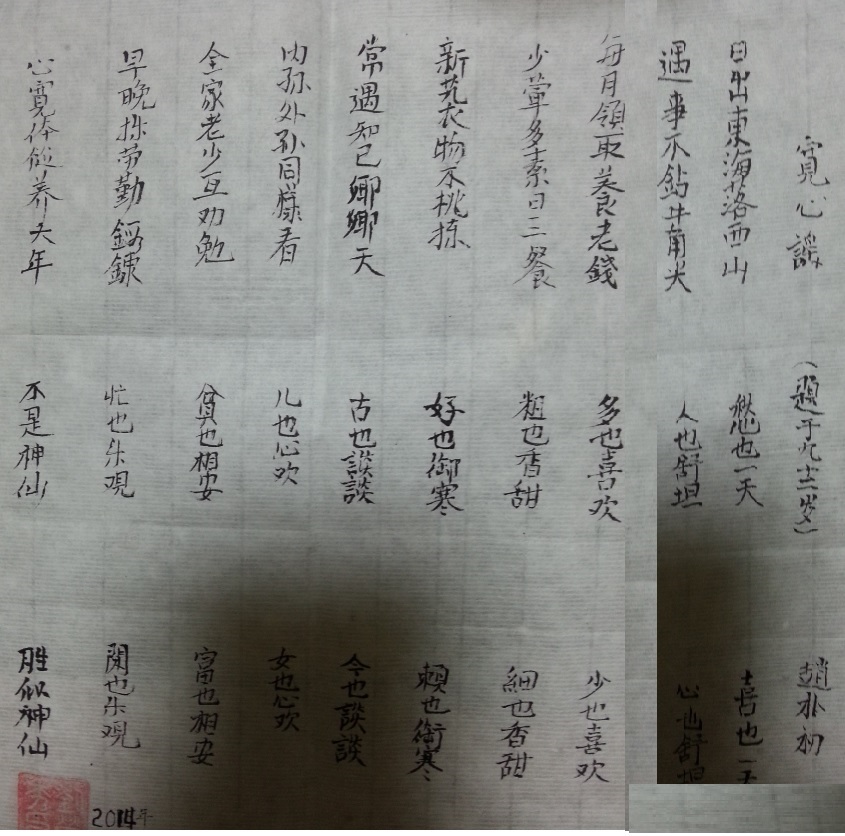 寬心謠 (題于九十二岁) 趙朴初
日出東海落西山 愁也一天 喜也一天
遇事不鉆井角尖 人也舒坦 心也舒坦
每月領取養老錢 多也喜欢 少也喜欢
少葷多素日三餐 粗也香甜 細也香甜
新旧衣物不挑拣 好也御寒 賴也御寒
常遇知己卿卿天 古也談談 今也談談
内孙外孙同樣看 儿也心欢 女也心欢
全家老少互劝勉 貧也相安 富也相安
早晚操劳勤鍛鍊 忙也乐观 閑也乐观
心寬体健养天年 不是神仙 胜似神仙
2014年